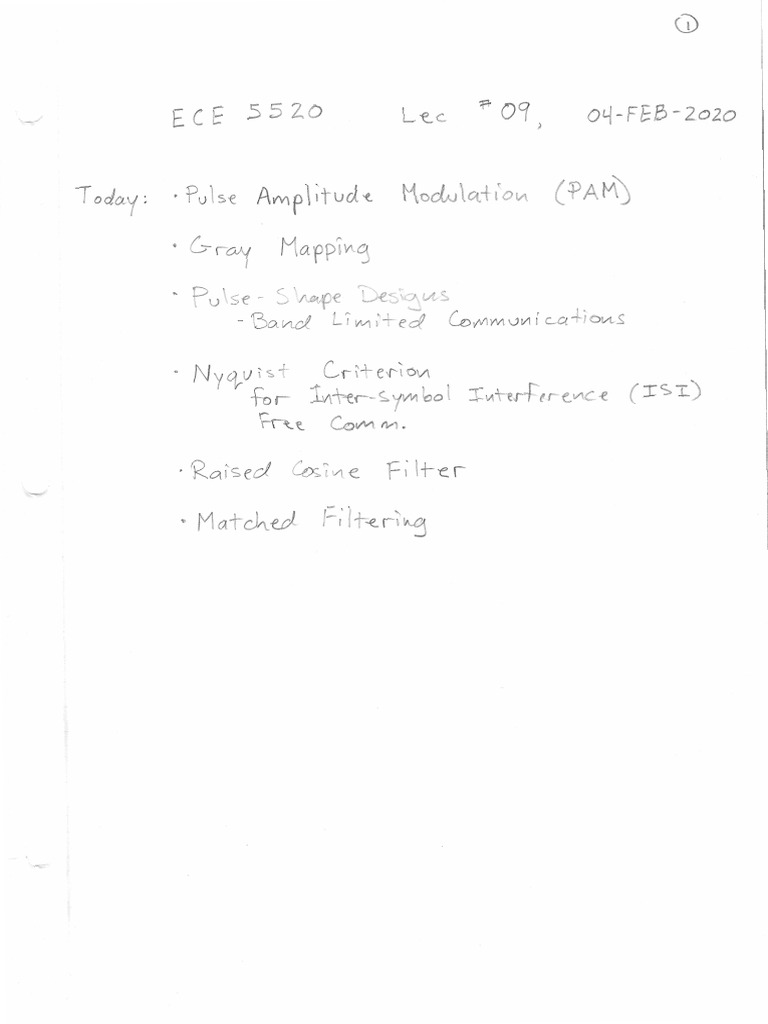 ①
ECE 5520 Lec #09, 04-FEB-2020
Today: · Pulse Amplitude Modulation (PAM)
· Gray Mapping
· Pulse-Shape Designs
- Band Limited Communications
· Nyquist Criterion
for Inter-symbol Interference (ISI)
Free Comm.
· Raised Cosine Filter
· Matched Filtering